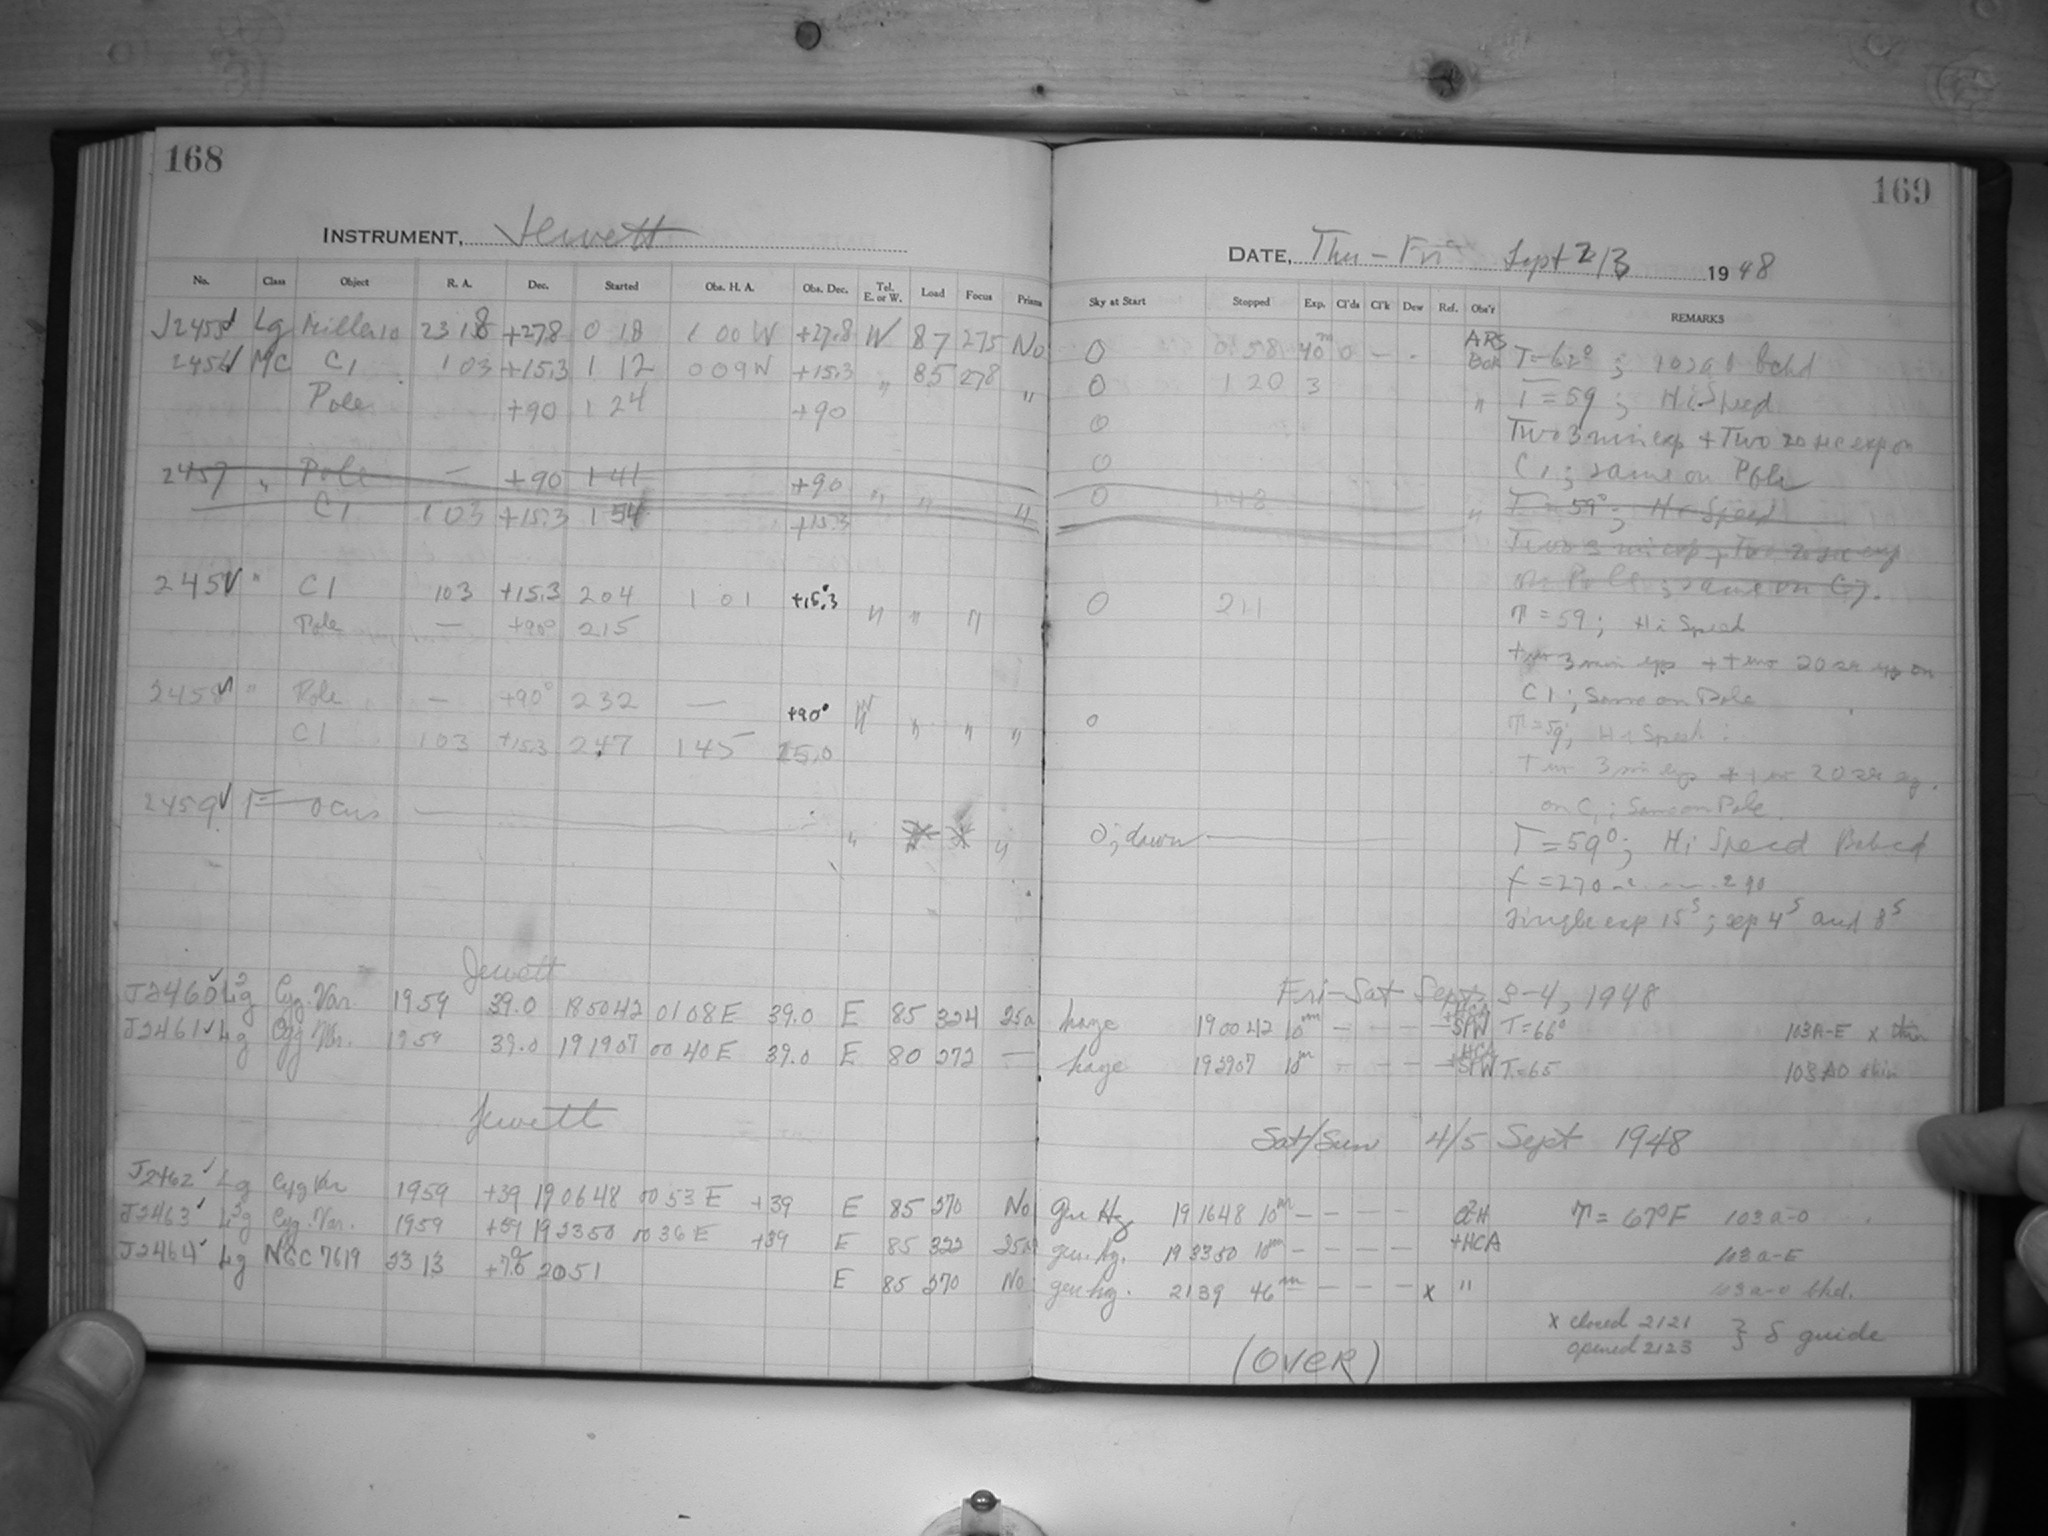 168
INSTRUMENT, Jewett
No. Class Object R. A. Dec. Started Obs. H. A. Obs. Dec. Tel. E. or W. Load Focus Prism
J2455 Lg Miller 10 2318 +27.8 0 18 1 00 W +27.8 W 87 275 No
2456 MC C1 1 03 +15.3 1 12 0 09 W +15.3 " 85 278 "
Pole +90 1 24 +90
2457 " Pole — +90 1 41 +90 " " "
C1 1 03 +15.3 1 54 +15.3
245 " C1 103 +15.3 204 1 01 +15.3 " " "
Pole — +90° 215
2458 " Pole — +90° 232 — +90° W " " "
C1 103 +15.3 247 145 15.0
2459 Focus " "
Jewett
J2460 Lg Cyg. Var. 1959 39.0 185042 0108E 39.0 E 85 324 25a
J2461 Lg Cyg. Var. 1959 39.0 191907 00 40E 39.0 E 80 272 —
Jewett
J2462 Lg Cyg Var 1959 +39 190648 00 53 E +39 E 85 270 No
J2463 Lg Cyg. Var. 1959 +39 192350 00 36 E +39 E 85 322
J2464 Lg NGC 7619 2313 2051 E 85 270 No
169
DATE, Thu - Fri Sept 2/3 1948
Sky at Start Stopped Exp. Cl'ds Cl'k Dew Ref. Obs'r REMARKS
0 0 58 40m 0 - - ARS T=62° ; 103a0 Bckd
0 1 20 3 " T=59 ; Hi Speed
0 Two 3 min exp + Two 20 sec exp on
0 C1 ; same on Pole
0 148 " T=59° ; Hi Speed
Two 3 min exp + Two 20 sec exp
on Pole ; same on C1.
0 211 T=59 ; Hi Speed
two 3 min exp + two 20 sec exp on
C1 ; Same on Pole
0 T=59 ; Hi Speed ;
two 3 min exp + two 20 sec exp.
on C1 ; Same on Pole.
0 ; dawn T=59° ; Hi Speed Baked
f=270 290
Single exp 15s ; sep 4s and 8s
Fri-Sat Sept 3-4, 1948
haze 190042 10m — — — — +HCA SPW T=66° 103A-E x thin
haze 192907 10m — — — — +HCA SPW T=65 103AO thin
Sat/Sun 4/5 Sept 1948
gen Hz 191648 10m — — — — T=67°F 103a-O
gen. hz. 193350 10m — — — — +HCA 103a-E
gen hz. 2139 46m — — — — x " 103a-O bkd.
x closed 2121
opened 2123 } δ guide
(OVER)